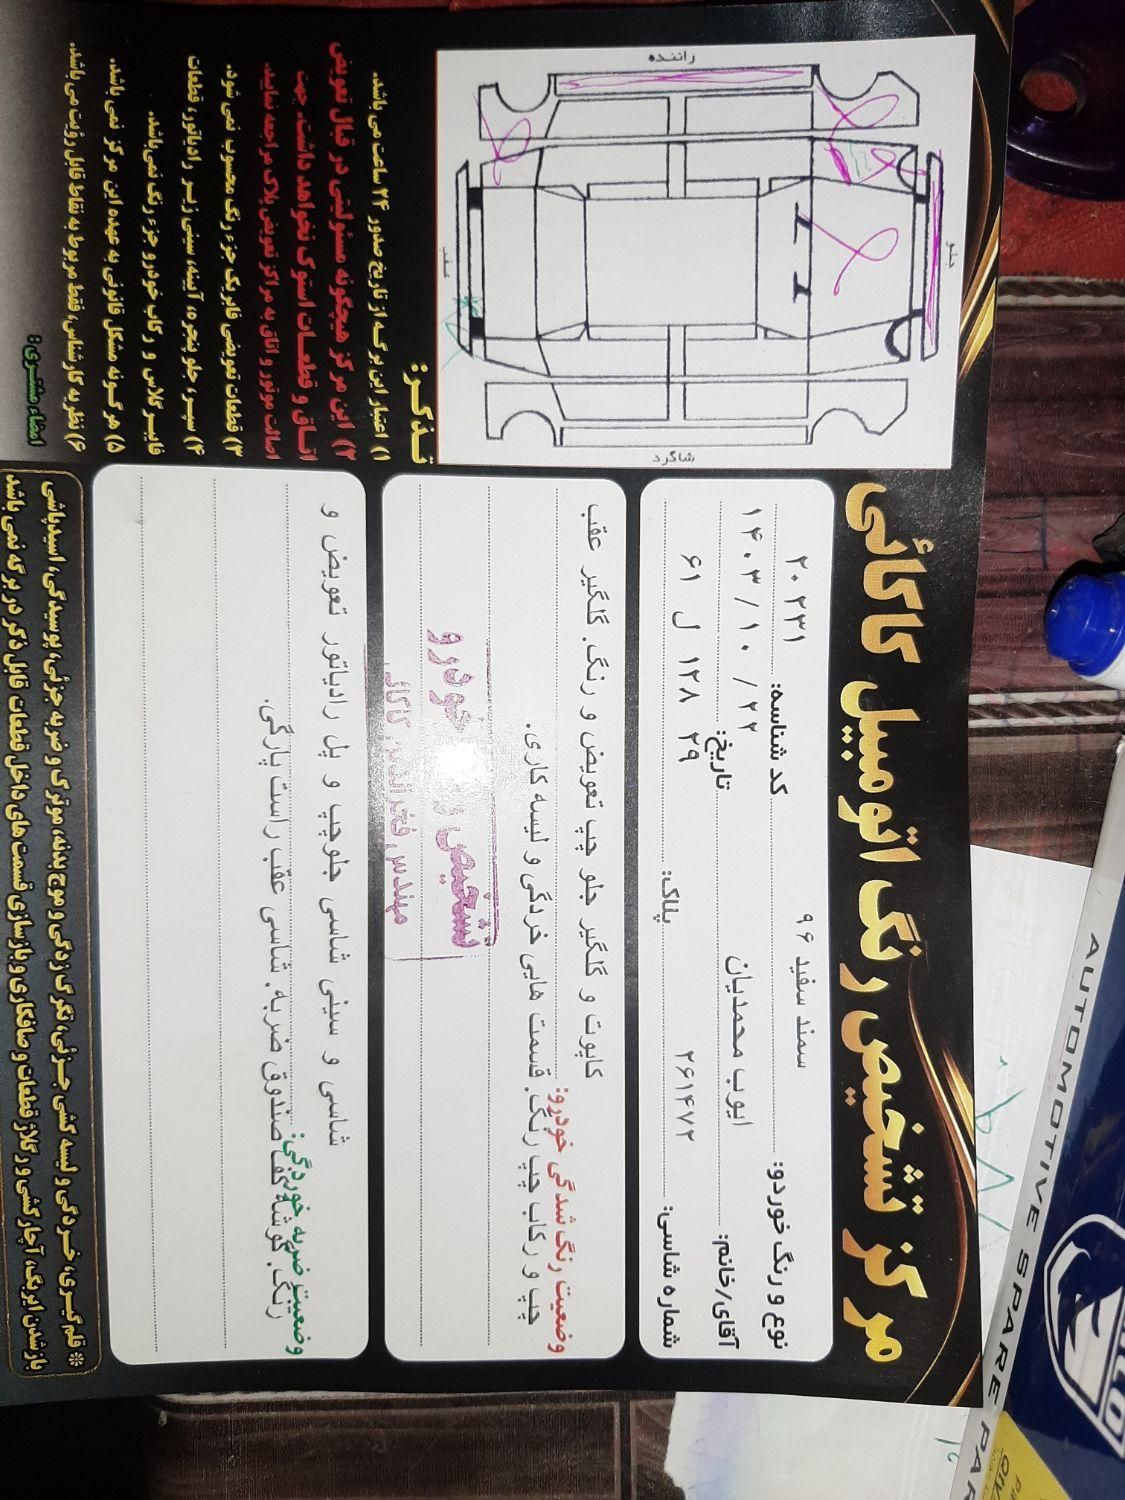 مرکز تشخیص رنگ اتومبیل کاکائی
نوع و رنگ خوردو: سمند سفید ۹۶ کد شناسه: ۲۰۲۳۱
آقای/خانم: ایوب محمدیان تاریخ: ۱۴۰۳ / ۱۰ / ۲۲
شماره شاسی: ۲۶۱۴۷۲ پلاک: ۲۹ ۱۲۸ ل ۶۱
وضعیت رنگ شدگی خودرو: کاپوت و گلگیر جلو چپ تعویض و رنگ. گلگیر عقب
چپ و رکاب چپ رنگ. قسمت هایی خردگی و لیسه کاری.
تشخیص خودرو
مهندس کاکائی
وضعیت ضربه خوردگی: شاسی و سینی شاسی جلوچپ و پل رادیاتور تعویض و
رنگ. گوشه کف صندوق ضربه. شاسی عقب راست پارگی.
راننده
جلو
عقب
شاگرد
تذکر:
۱) اعتبار این برگه از تاریخ صدور ۲۴ ساعت می باشد.
۲) این مرکز هیچگونه مسئولیتی در قبال تعویض
اتاق و قطعات استوک نخواهد داشت. جهت
اصالت موتور و اتاق به مراکز تعویض پلاک مراجعه نمایید.
۳) قطعات تعویضی فابریک جزء رنگ محسوب نمی شود.
۴) سپر، جلو پنجره، آیینه، سینی زیر رادیاتور، قطعات
فایبرگلاس و رکاب خودرو جزء رنگ نمی‌باشد.
۵) هرگونه مشکل قانونی به عهده این مرکز نمی باشد.
۶) نظریه کارشناس، فقط مربوط به نقاط قابل رؤیت می باشد.
امضاء مشتری:
※ قلم گیری، خردگی و لیسه کشی جزئی، تگرگ زدگی و موج بدنه، موترک و ضربه جزئی، پوسیدگی، اسیدپاشی
باز شدن ابرنگ، آچارکشی ورگلاژ قطعات و صافکاری و بازسازی قسمت های داخل قطعات قابل ذکر در برگه نمی باشد
AUTOMOTIVE SPARE PAR